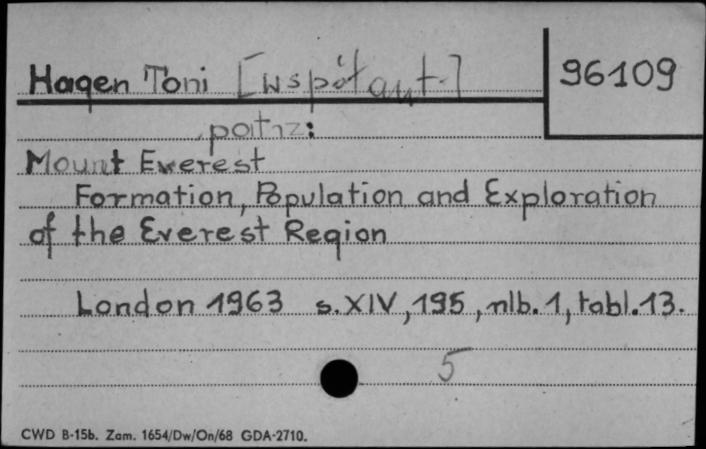 Hagen Toni [współaut.]
96109
patrz:
Mount Everest
Formation, Population and Exploration
of the Everest Region
London 1963 s. XIV, 195, nlb. 1, tabl. 13.
5
CWD B-15b. Zam. 1654/Dw/On/68 GDA-2710.